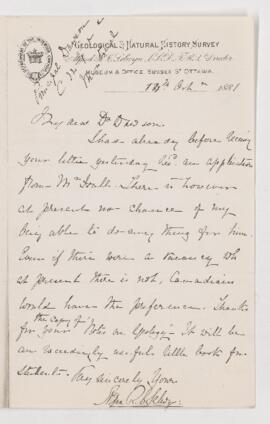 Principal Dawson
GEOLOGICAL & NATURAL HISTORY SURVEY
Alfred R. C. Selwyn, LL.D. F.R.S. Director
MUSEUM & OFFICE, SUSSEX ST OTTAWA.
1881
My dear Dr Dawson.
I had already before receiving
your letter yesterday an application
from Mr There is however
at present no chance of my
being able to do any thing for him.
Even if there were a vacancy wh
at present there is not, Canadians
would have the preference. Thanks
for the copy of your "Notes on Geology". It will be
an exceedingly useful little book for
Students.
Very sincerely Yours
Alfred R. C. Selwyn